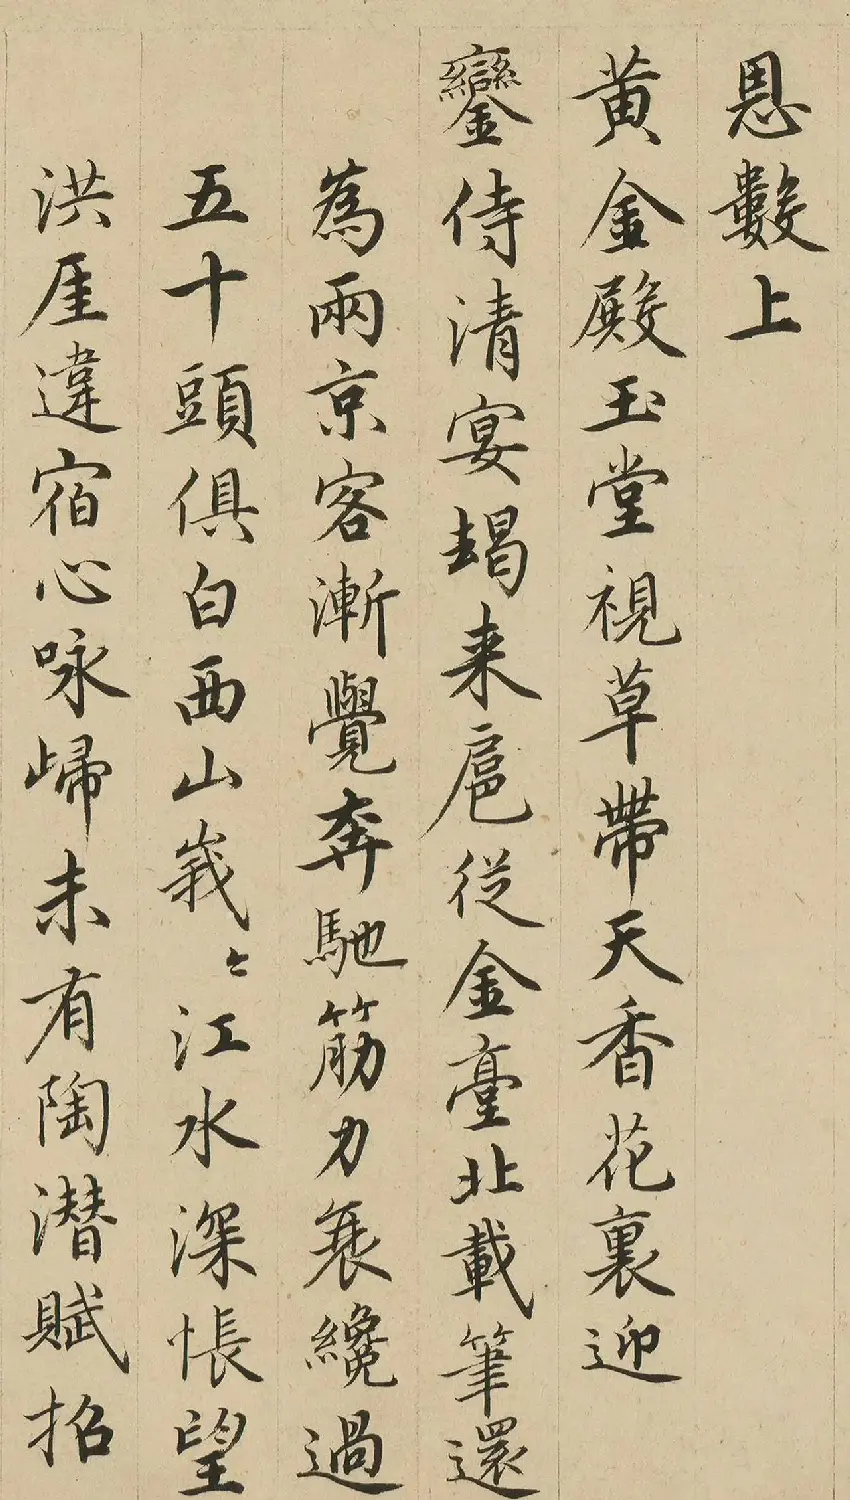 恩數上
黃金殿玉堂視草帶天香花裏迎
鑾侍清宴朅来扈從金臺北載筆還
為兩京客漸覺奔馳筋力衰纔過
五十頭俱白西山峩〻江水深悵望
洪厓違宿心咏歸未有陶潛賦招